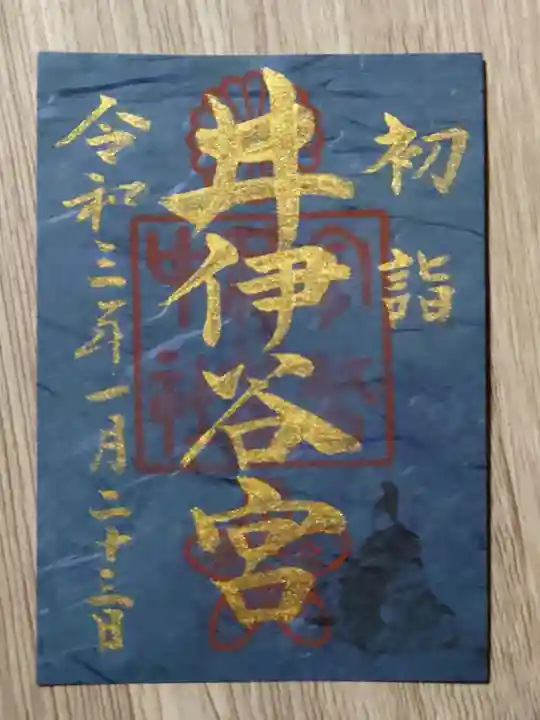 初詣
井伊谷宮
令和三年一月二十三日